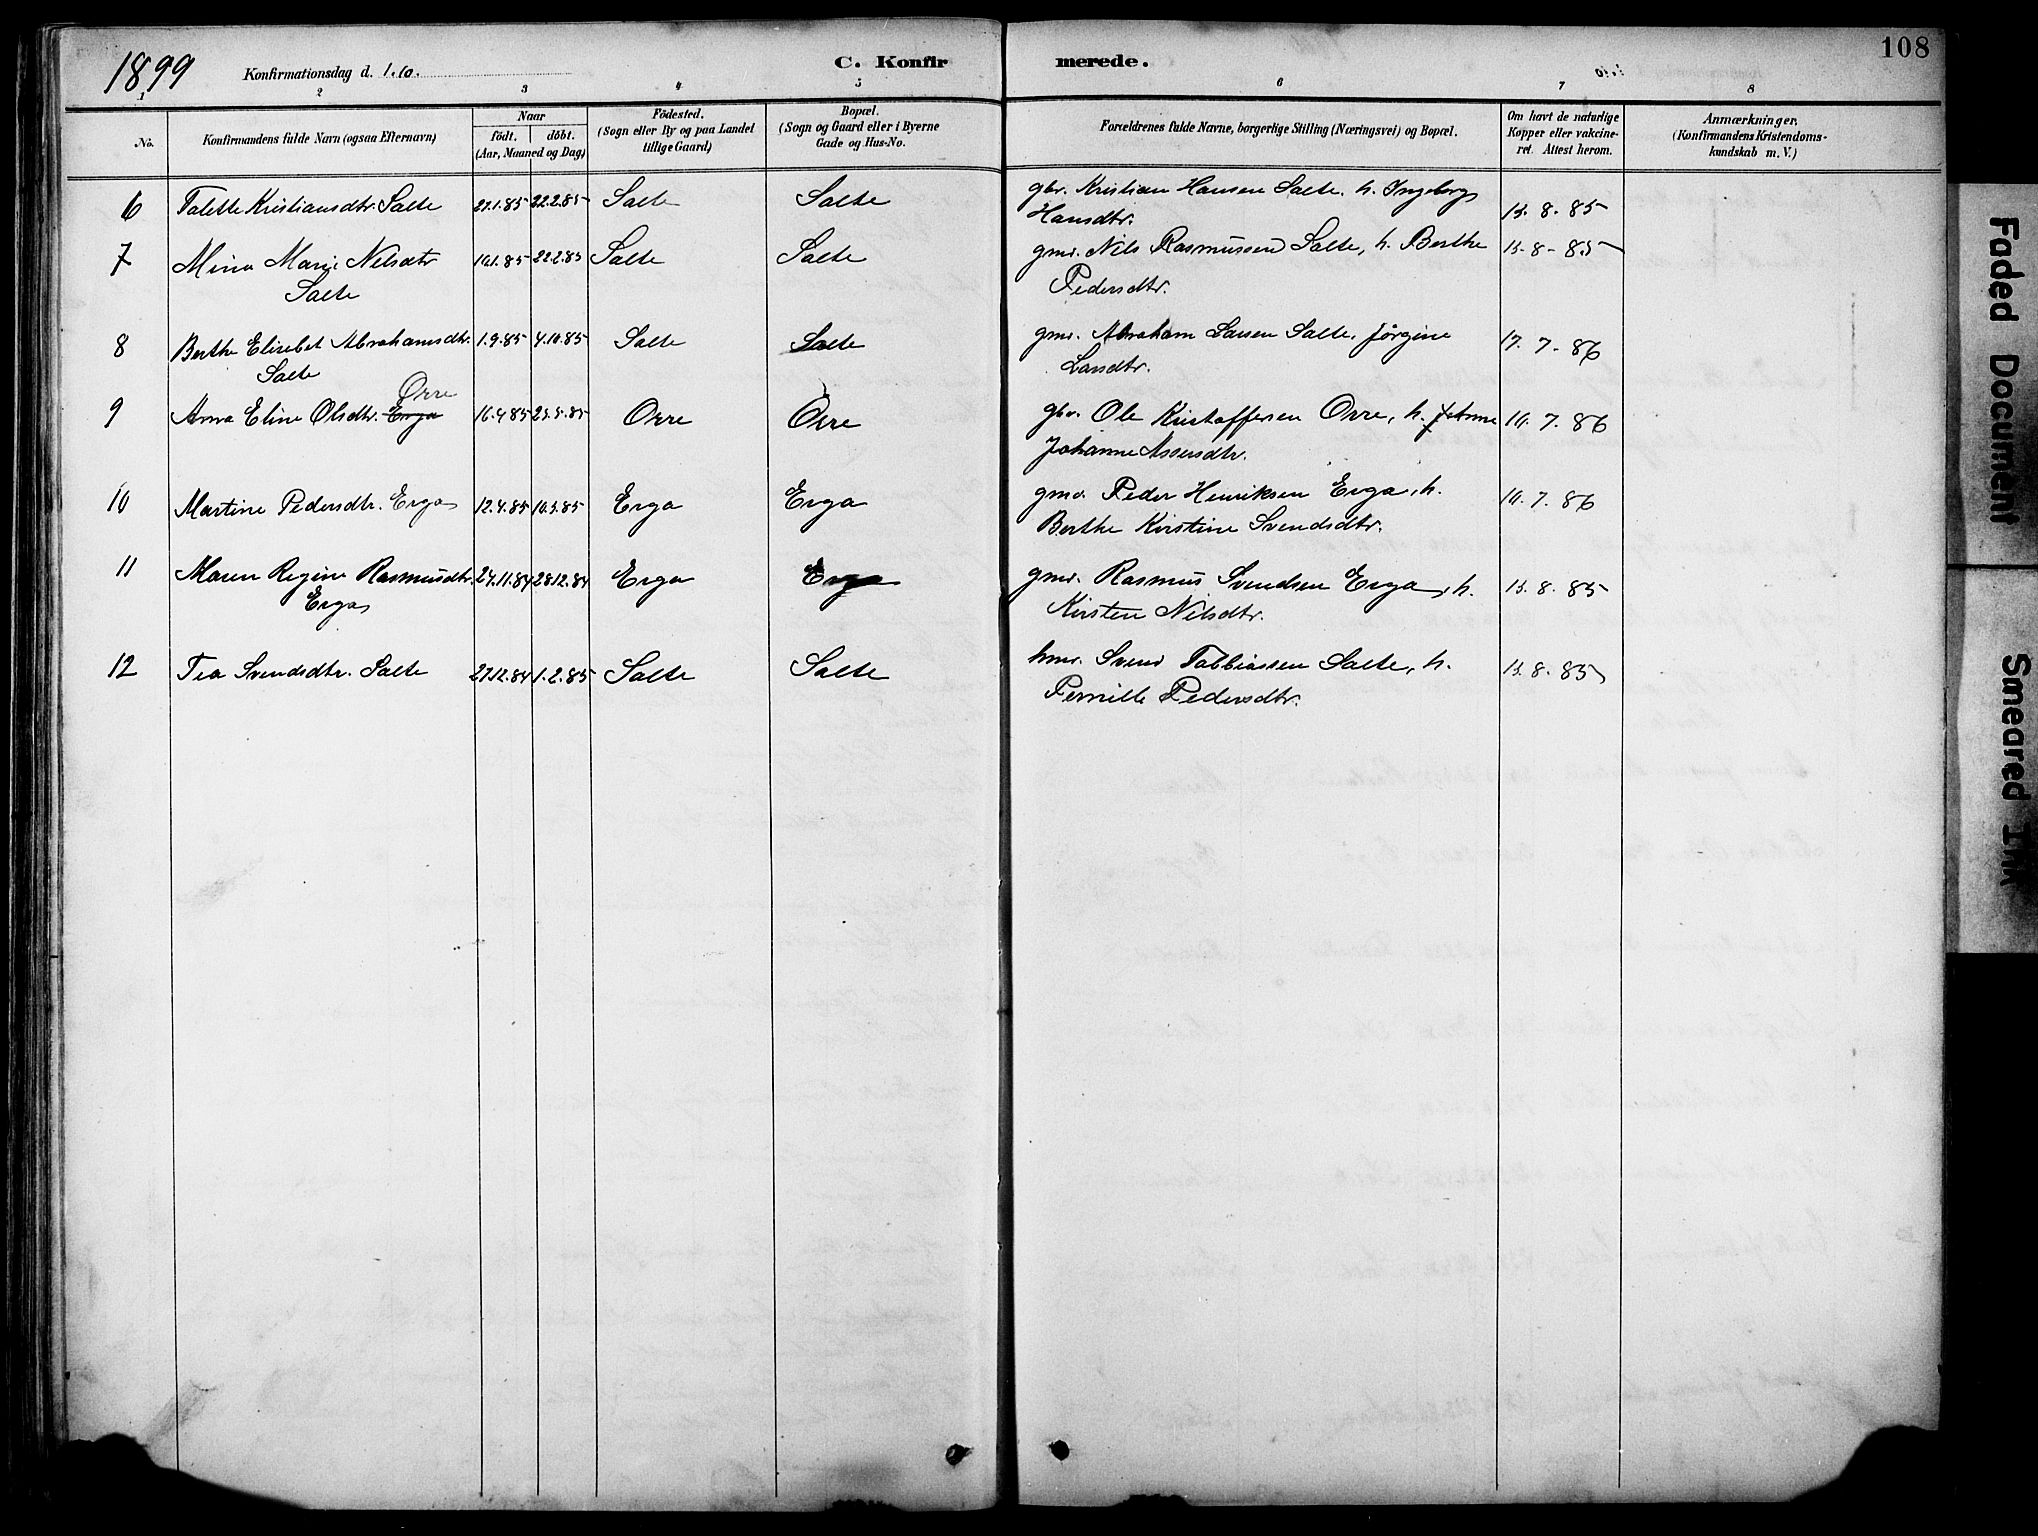 108
1899 Konfirmationsdag d. 1.10. C. Konfirmerede.
1 2 3 4 5 6 7 8
No. Konfirmandens fulde Navn (ogsaa Efternavn) Naar født. døbt. (Aar, Maaned og Dag) Fødested. (Sogn eller By og paa Landet tillige Gaard) Bopæl. (Sogn og Gaard eller i Byerne Gade og Hus-No. Forældrenes fulde Navne, borgerlige Stilling (Næringsvei) og Bopæl. Om havt de naturlige Kopper eller vakcineret. Attest herom. Anmærkninger. (Konfirmandens Kristendomskundskab m. V.)
6 Talette Kristiansdtr. Salte 22.2.85 Salte Salte gbr. Kristian Hansen Salte, h. Ingeborg
Hansdtr. 13.8.85
7 Mina Marie Nelsdtr 22.2.85 Salte Salte gmd. Nils Rasmussen Salte, h. Berthe 13-8-85
Salte Pedersdtr.
8 Berthe Elisebet Abrahamsdtr. 1.9.85 4.10.85 Salte Salte gmd. Abraham Larsen Salte, Jørgine 17.7.86
Salte Larsdtr.
Orre
9 Anna Eline Olsdtr. Erga 16.4.85 25.5.85 Orre Orre gbr. Ole Kristoffersen Orre, h. Anne 10.7.86
Johanne Assersdtr.
10 Martine Pedersdtr. Erga 12.4.85 10.5.85 Erga Erga gmd. Peder Henriksen Erga, h. 10.7.86
Berthe Kirstine Svendsdtr.
11 Maren Regine Rasmusdtr. 24.11.84 28.12.84 Erga Erga gmd. Rasmus Svendsen Erga, h. 13.8.85
Erga Kirsten Nilsdtr.
12 Tea Svendsdtr. Salte 27.12.84 1.2.85 Salte Salte hmd. Svend Tobbiassen Salte, h. 13.8.85
Pernille Pedersdtr.
Faded Document
Smeared Ink